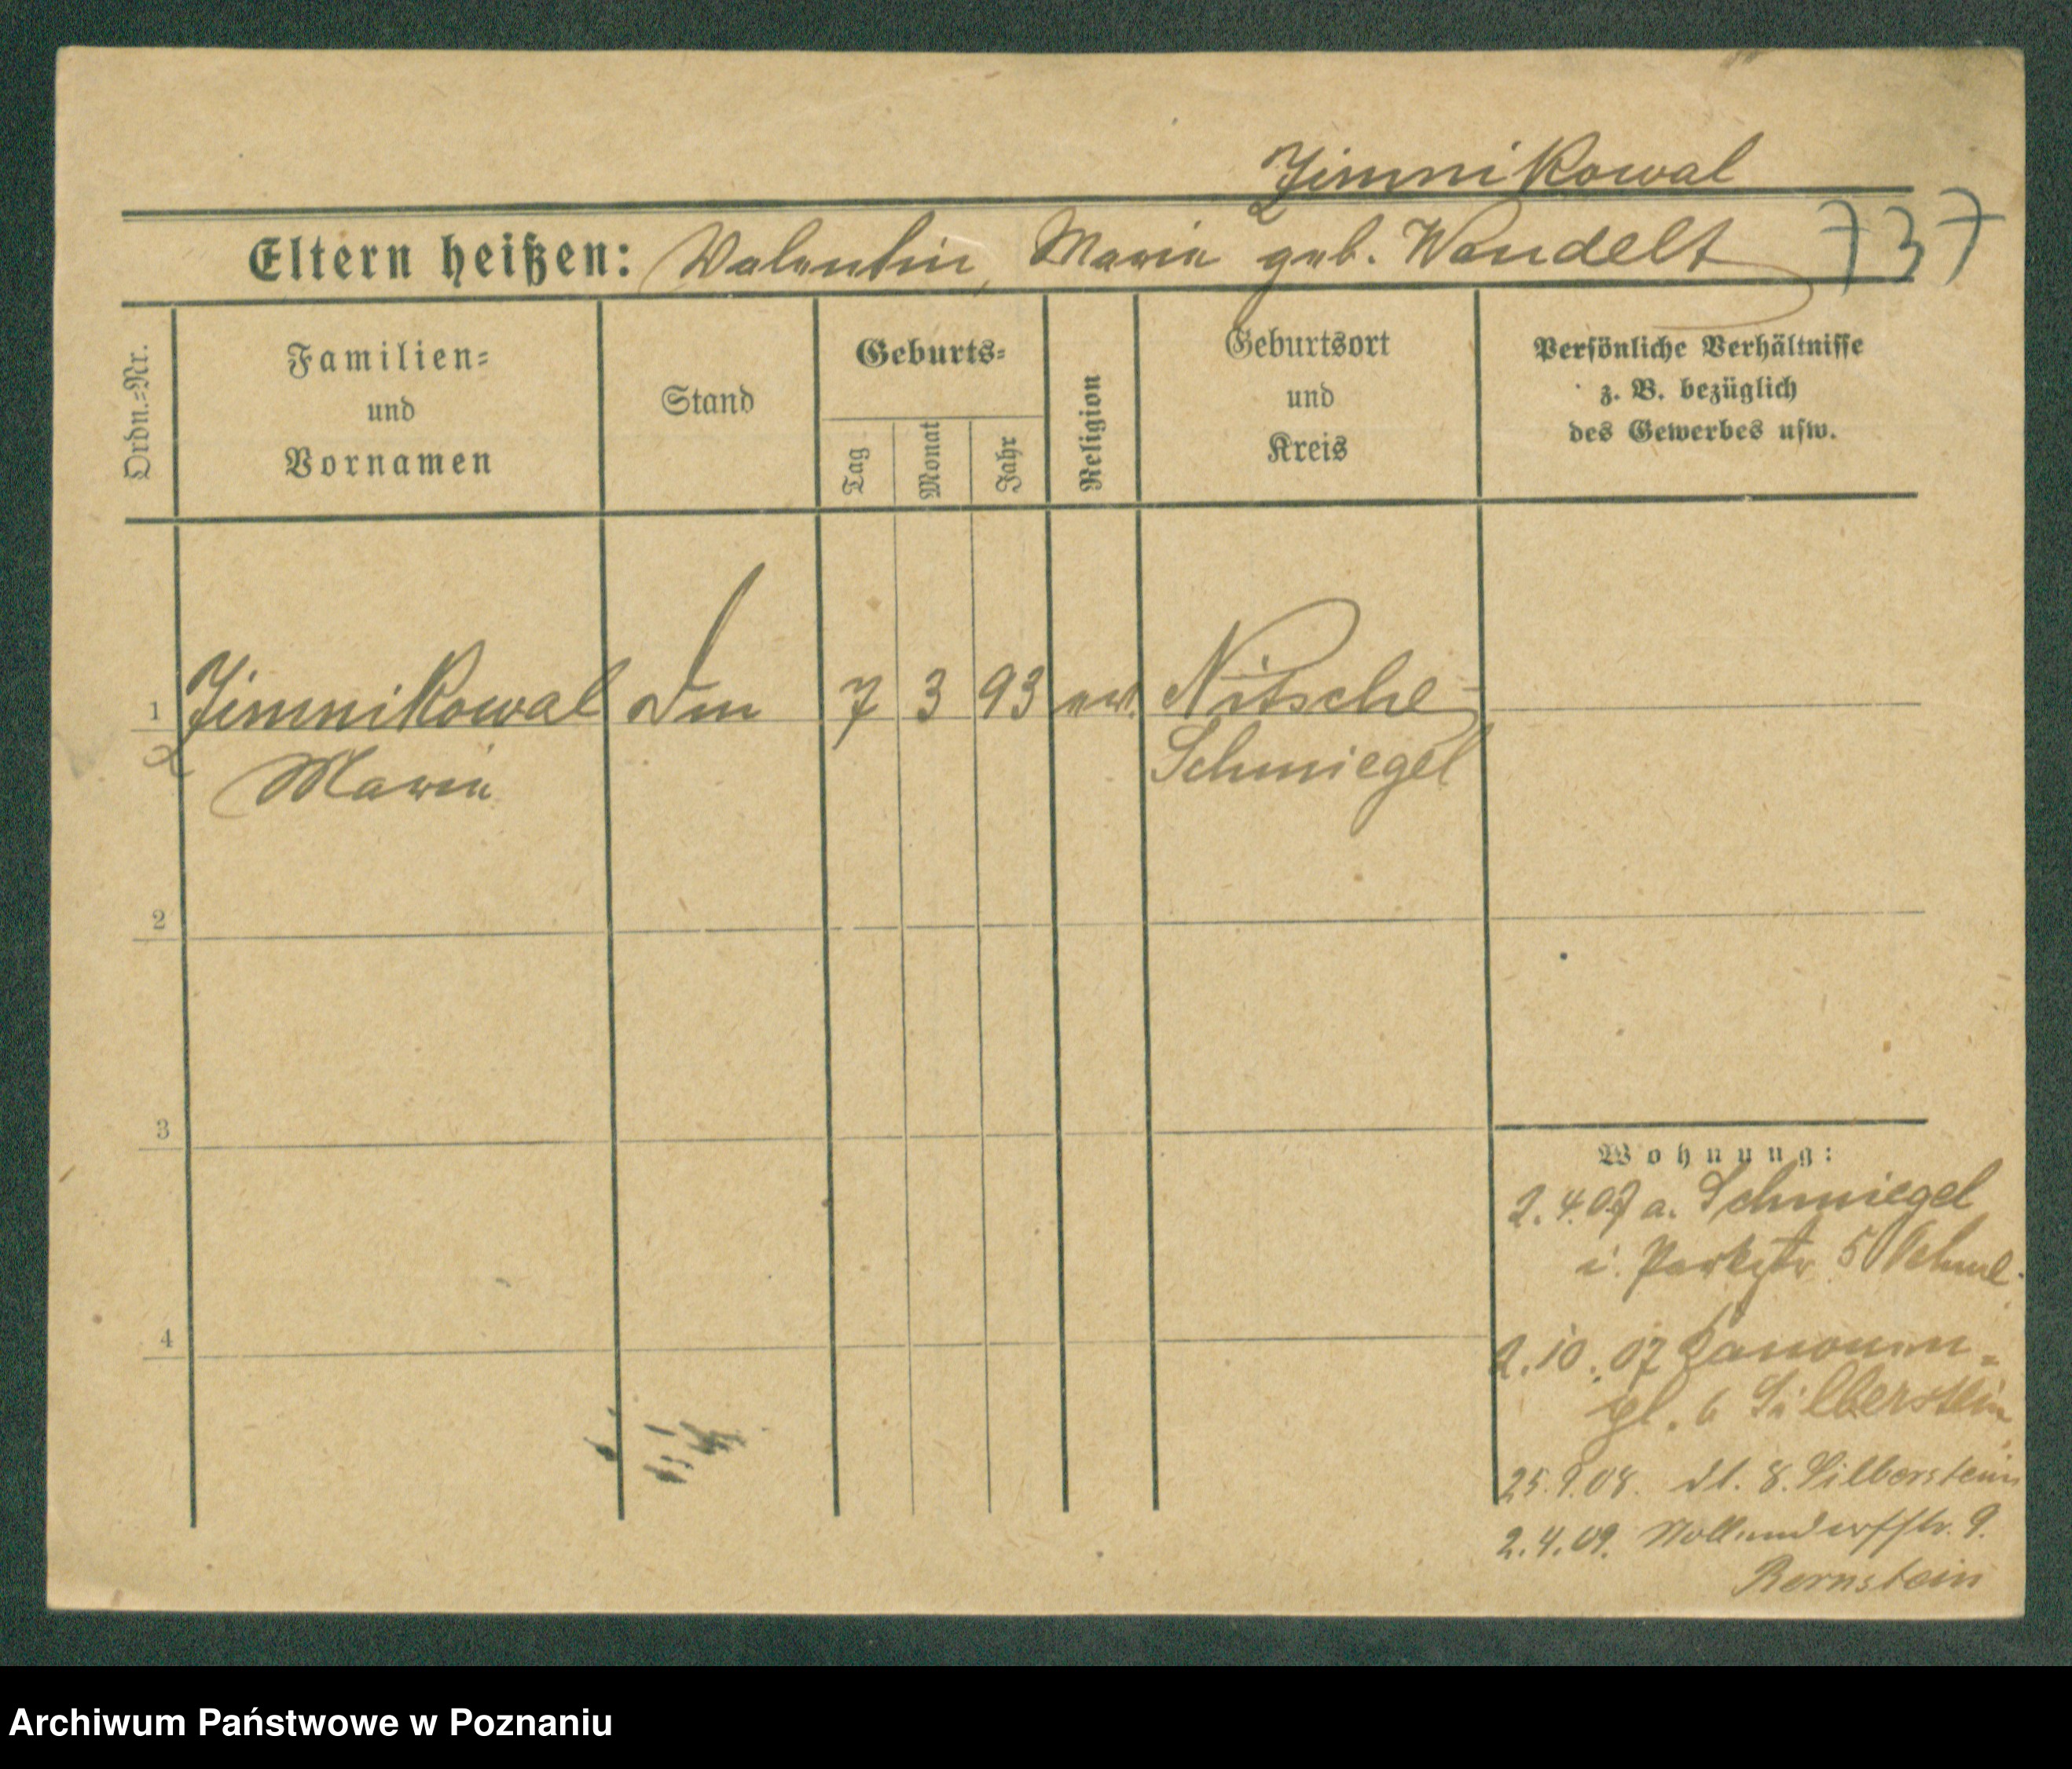 Zimni Kowal
Eltern heißen: Valentin, Maria geb. Wandelt 737
Ordn.-Nr.
Familien-
und
Vornamen
Stand
Geburts-
Tag
Monat
Jahr
Religion
Geburtsort
und
Kreis
Persönliche Verhältnisse
z. B. bezüglich
des Gewerbes usw.
1 Zimni Kowal 7 3 93 Nitsche-
Maria Schmiegel
2
3
4
Wohnung:
2.4.07 a. Schmiegel
i. Parkstr 5
2.10.07 Kanonen-
pl. 6 Silberstein
25.9.08. dt. 8. Silberstein
2.4.09. Nollendorfstr. 9.
Bernstein
Archiwum Państwowe w Poznaniu